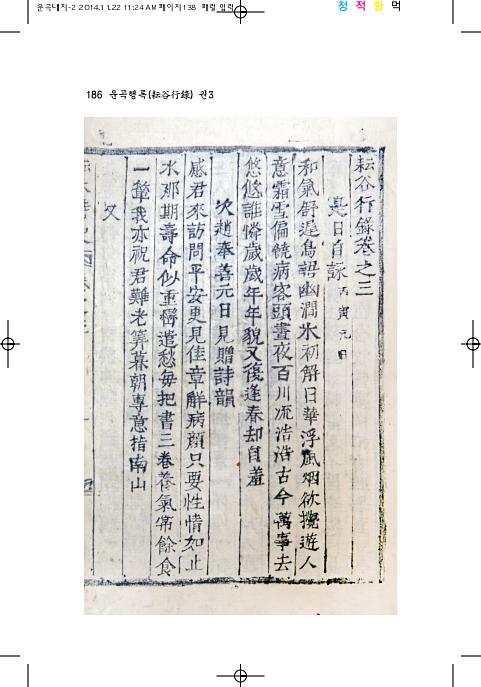 운곡내지-2 2014.11.22 11:24 AM 페이지138
청 적 황 먹
186 운곡행록(耘谷行錄) 권3
耘谷行錄卷之三
是日自詠 丙寅元日
和氣舒遲鳥語幽澗氷初解日華浮風烟欲攪遊人
意霜雪偏饒病客頭晝夜百川流浩浩古今萬事去
悠悠誰憐歲歲年年貌又復逢春却自羞
次趙奉善元日見贈詩韻
感君來訪問平安更見佳章解病顔只要性情如止
水那期壽命似重巒遣愁每把書三卷養氣常餘食
一簞我亦祝君難老筭暮朝專意指南山
又